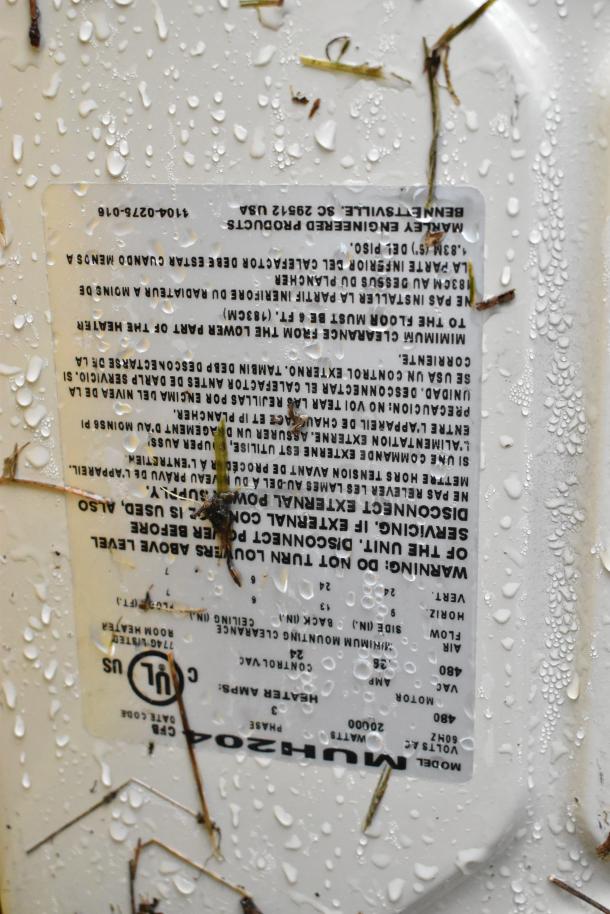 MODEL MUH204 CFB
VOLTS AC WATTS PHASE DATE CODE
60HZ 20000 3
480
MOTOR HEATER AMPS:
VAC AMP CONTROL VAC
480 24
C UL US
774G LISTED
ROOM HEATER
AIR MINIMUM MOUNTING CLEARANCE
FLOW SIDE (IN.) BACK (IN.) CEILING (IN.) FLOOR (FT.)
HORIZ. 9 13 6 7
VERT. 24 24 6 7
WARNING: DO NOT TURN LOUVERS ABOVE LEVEL
OF THE UNIT. DISCONNECT POWER BEFORE
SERVICING. IF EXTERNAL CONT 2 IS USED, ALSO
DISCONNECT EXTERNAL POWER SUPPLY.
NE PAS RELEVER LES LAMES AU-DELÀ DU NIVEAU DE L'APPAREIL.
METTRE HORS TENSION AVANT DE PROCÉDER À L'ENTRETIEN.
SI UNE COMMANDE EXTERNE EST UTILISÉ, COUPER AUSSI
L'ALIMENTATION EXTERNE. ASSURER UN DÉGAGEMENT D'AU MOINS PI
ENTRE L'APPAREIL DE CHAUFFAGE ET PLANCHER.
PRECAUCION: NO VOLTEAR LAS REJILLAS POR ENCIMA DEL NIVEL DE LA
UNIDAD. DESCONNECTAR EL CALEFACTOR ANTES DE DARLE SERVICIO. SI
SE USA UN CONTROL EXTERNO. TAMBIEN DEBE DESCONECTARSE DE LA
CORRIENTE.
MIMIMUM CLEARANCE FROM THE LOWER PART OF THE HEATER
TO THE FLOOR MUST BE 6 FT. (183CM)
NE PAS INSTALLER LA PARTIE INFÉRIEURE DU RADIATEUR A MOINS DE
183CM AU DESSUS DU PLANCHER
LA PARTE INFERIOR DEL CALEFACTOR DEBE ESTAR CUANDO MENOS A
1.83M (6') DEL PISO.
MARLEY ENGINEERED PRODUCTS
BENNETTSVILLE, SC 29512 USA 1104-0275-016